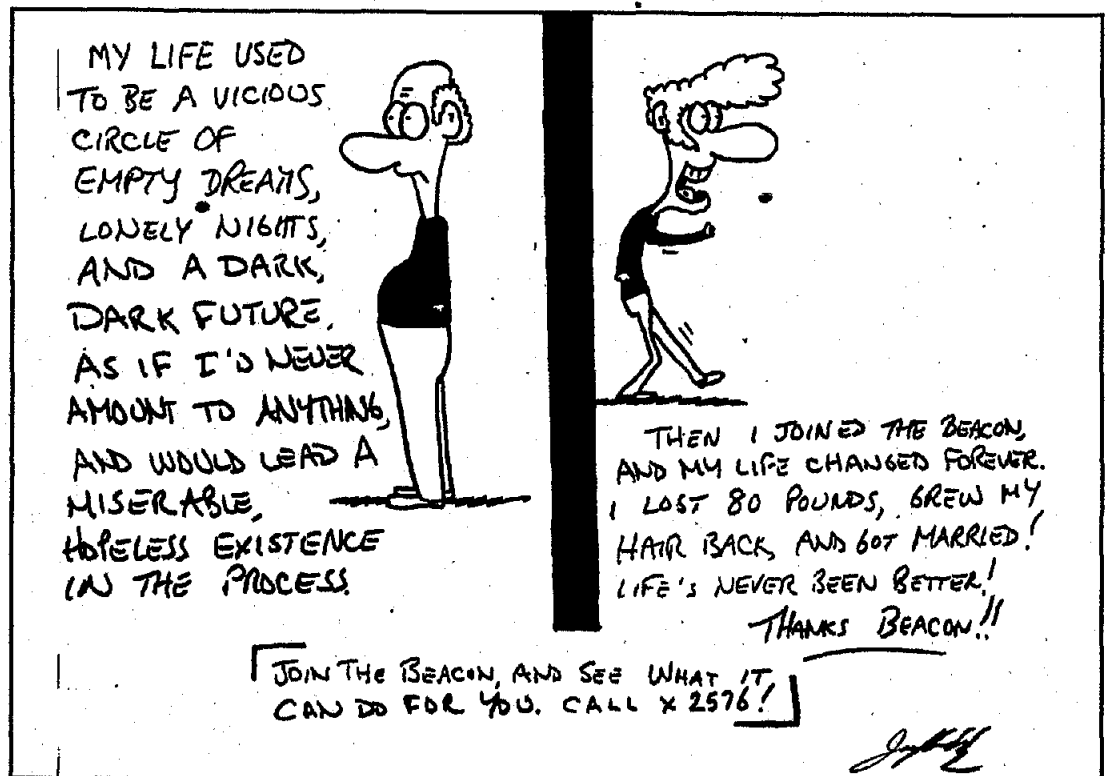 MY LIFE USED
TO BE A VICIOUS
CIRCLE OF
EMPTY DREAMS,
LONELY NIGHTS,
AND A DARK,
DARK FUTURE.
AS IF I'D NEVER
AMOUNT TO ANYTHING,
AND WOULD LEAD A
MISERABLE,
HOPELESS EXISTENCE
IN THE PROCESS.
THEN I JOINED THE BEACON,
AND MY LIFE CHANGED FOREVER.
I LOST 80 POUNDS, GREW MY
HAIR BACK, AND GOT MARRIED!
LIFE'S NEVER BEEN BETTER!
THANKS BEACON!!
JOIN THE BEACON, AND SEE WHAT IT
CAN DO FOR YOU. CALL X 2576!